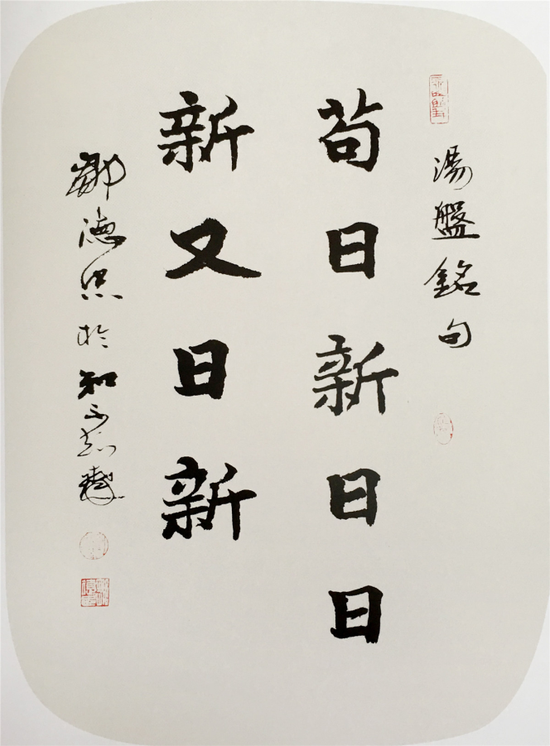 湯盤銘句
苟日新日日
新又日新
德 於知不